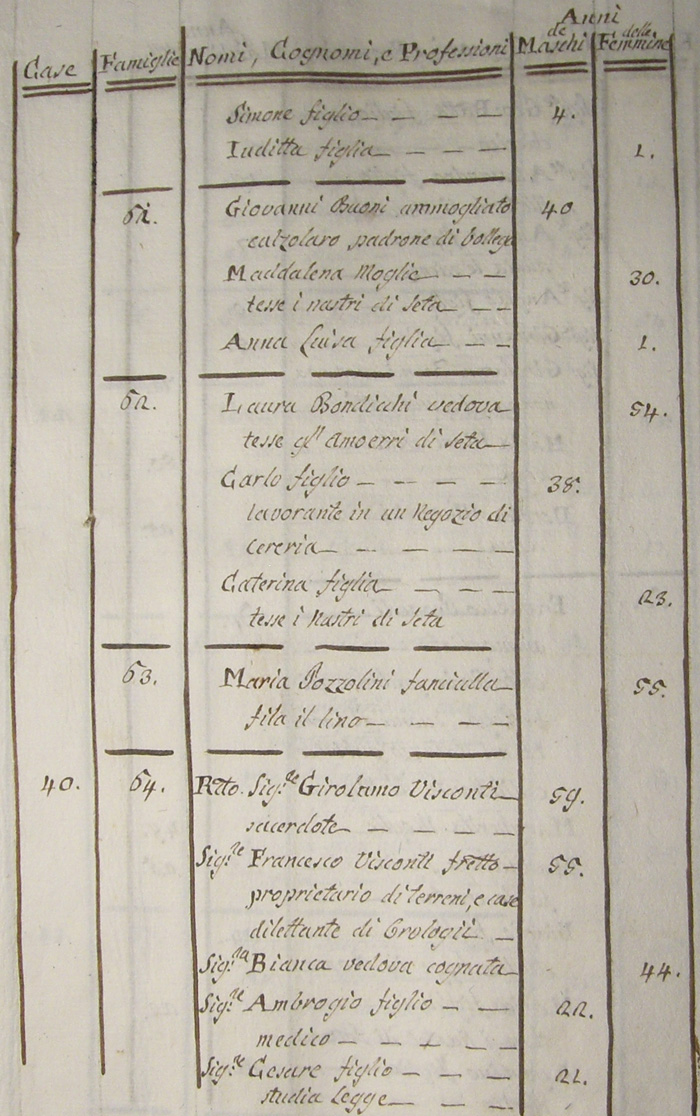 Anni
Case Famiglie Nomi, Cognomi, e Professioni de Maschi delle Femmine
Simone figlio — — — — 4.
Iuditta figlia — — — 1.
61. Giovanni Buoni ammogliato 40
calzolaro padrone di bottega
Maddalena Moglie — — — 30.
tesse i nastri di seta — —
Anna Luisa figlia — — — 1.
62. Laura Bondicchi vedova 54.
tesse gli Amoerri di seta —
Carlo figlio — — — — 38.
lavorante in un Negozio di
cereria — — — —
Caterina figlia — — — 23.
tesse i Nastri di seta
63. Maria Pozzolini fanciulla 55.
fila il lino — — — —
40. 64. Sig.re Girolamo Visconti 59.
sacerdote — — — —
Sig.re Francesco Visconti 55.
proprietario di terreni, e case
dilettante di Orologii —
Sig.ra Bianca vedova cognata 44.
Sig.re Ambrogio figlio — — 22.
medico — — — — —
Sig.re Cesare figlio — — 21.
studia Legge — — —